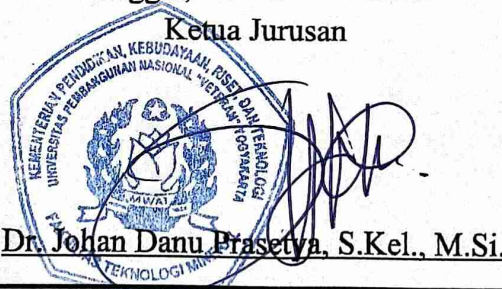 Ketua Jurusan
KEMENTERIAN PENDIDIKAN, KEBUDAYAAN, RISET DAN TEKNOLOGI
UNIVERSITAS PEMBANGUNAN NASIONAL "VETERAN" YOGYAKARTA
Dr. Johan Danu Prasetya, S.Kel., M.Si.
TEKNOLOGI